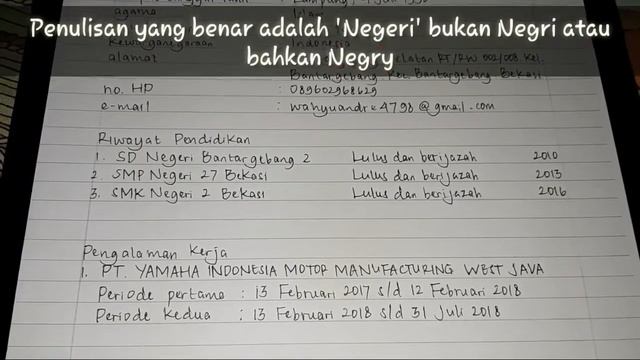 Penulisan yang benar adalah 'Negeri' bukan Negri atau
bahkan Negry
agama
Kewarganegaraan : Indonesia
alamat RT/RW 002/008 Kel.
Bantargebang Kec. Bantargebang Bekasi
no. HP : 089602968629
e-mail : wahyuandre4798@gmail.com
Riwayat Pendidikan
1. SD Negeri Bantargebang 2 Lulus dan berijazah 2010
2. SMP Negeri 27 Bekasi Lulus dan berijazah 2013
3. SMK Negeri 2 Bekasi Lulus dan berijazah 2016
Pengalaman Kerja
1. PT. YAMAHA INDONESIA MOTOR MANUFACTURING WEST JAVA
Periode pertama : 13 Februari 2017 s/d 12 Februari 2018
Periode Kedua : 13 Februari 2018 s/d 31 Juli 2018